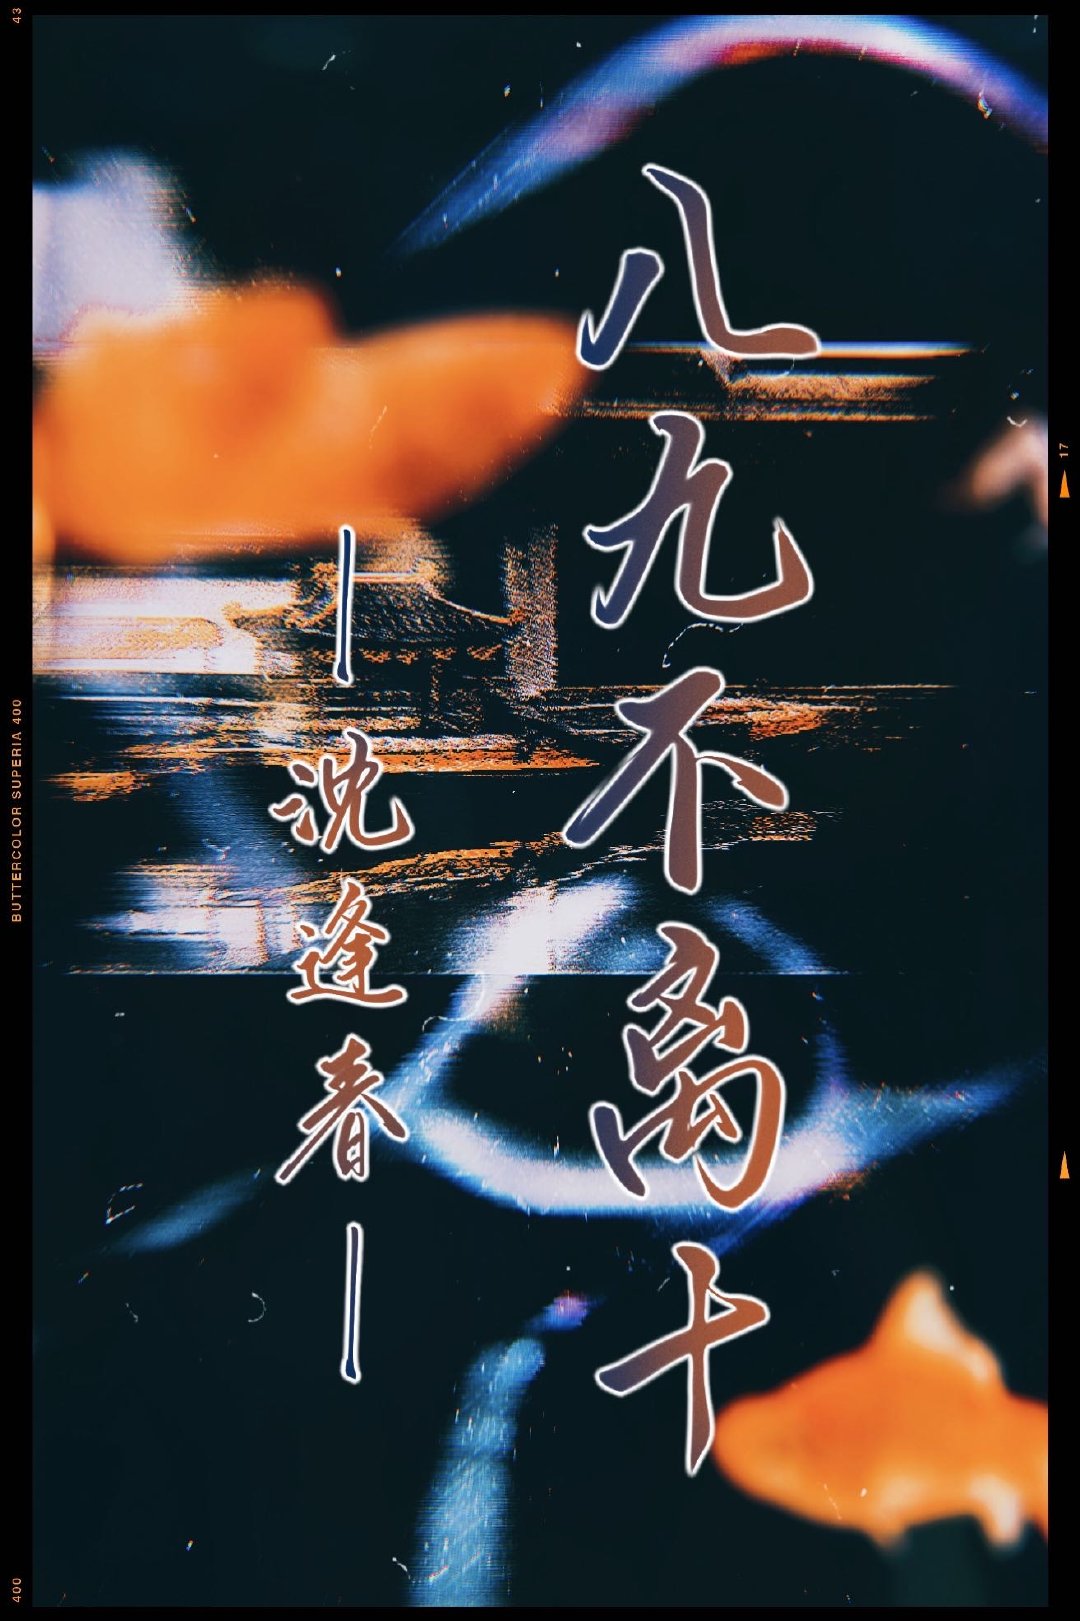 八九不离十
｜沈逢春｜
43
BUTTERCOLOR SUPERIA 400
400
17